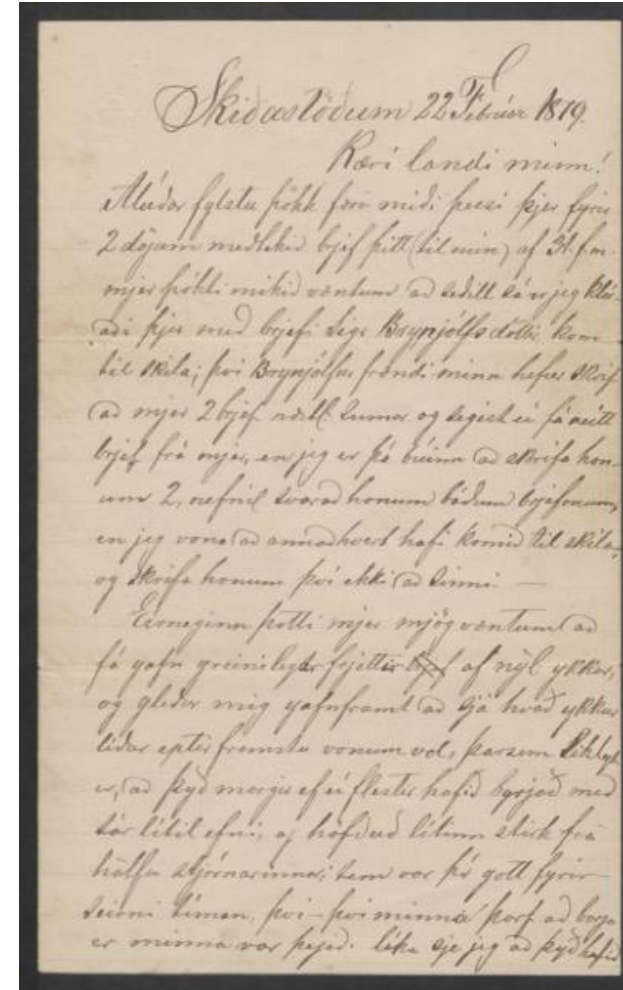 Skíðastöðum 22 Febrúar 1879.
Kæri landi minn!
Alúdar fylstu þökk færi miði þessi þjer fyrir
2 dögum meðtekið brjef þitt (til mín) af 31. f.m.
mjer þókti mikið væntum að seðill sá er jeg
aði þjer með brjefi Sigr Brynjólfsdóttir kom
til skila; því Brynjólfur frændi minn hefur skrif
að mjer 2 brjef síðstl. Sumar og segist ei fá neitt
brjef frá mjer, en jeg er þó búinn að skrifa hon-
um 2, nefnil svarað honum báðum brjefonum,
en jeg vona að annaðhvert hafi komið til skila,
og skrifa honum því ekki að sinni. —
Eirneginn þótti mjer mjög væntumað
fá jafn greinilegar frjettir af nýl ykkar,
og gleður mig jafnframt að sjá hvað ykkur
líður eptir fremstu vonum vel, þarsem líklegt
er, að þyð margir ef ei flestir hafið byrjað með
sár lítil efni, og höfðuð lítinn stirk frá
hálfu stjórnarinnar, sem var þó gott fyrir
seirni tíman, því – því minna þarf að borga
er minna var þejið. líka sje jeg að þyð hafið